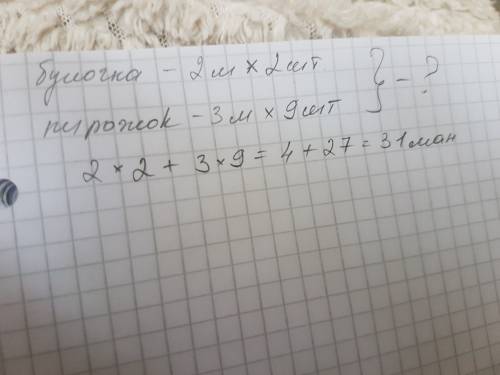 булочка - 2м × 2шт } - ?
пирожок - 3м × 9шт
2 × 2 + 3 × 9 = 4 + 27 = 31ман